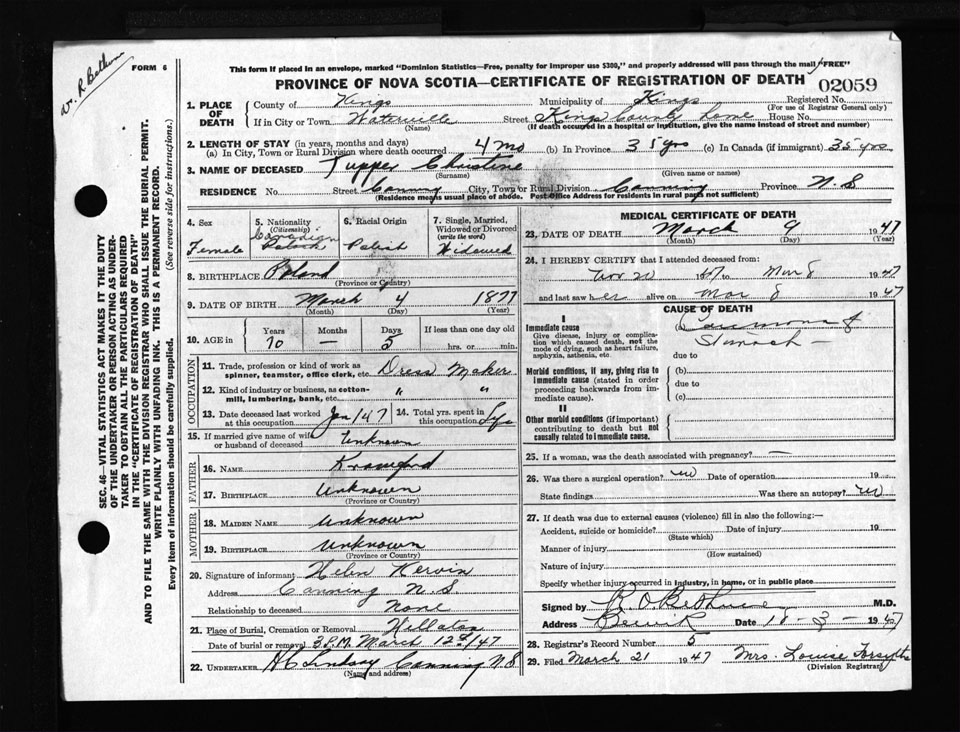 W. R. Bethune
FORM 6
This form if placed in an envelope, marked "Dominion Statistics—Free, penalty for improper use $300," and properly addressed will pass through the mail "FREE"
PROVINCE OF NOVA SCOTIA—CERTIFICATE OF REGISTRATION OF DEATH
02059
1. PLACE OF DEATH County of Kings Municipality of Kings Registered No.
(For use of Registrar General only)
If in City or Town Waterville Street Kings County Home House No.
(Name) (If death occurred in a hospital or institution, give the name instead of street and number)
2. LENGTH OF STAY (in years, months and days)
(a) In City, Town or Rural Division where death occurred 4 mo (b) In Province 35 yrs (c) In Canada (if immigrant) 35 yrs
3. NAME OF DECEASED Tupper Christine
(Surname) (Given name or names)
RESIDENCE No. Street Canning City, Town or Rural Division Canning Province N.S
(Residence means usual place of abode. Post Office Address for residents in rural parts not sufficient)
4. Sex Female
5. Nationality (Citizenship) Canadian
6. Racial Origin Polish
7. Single, Married, Widowed or Divorced (write the word) Widowed
8. BIRTHPLACE Poland
(Province or Country)
9. DATE OF BIRTH March 4 1877
(Month) (Day) (Year)
10. AGE in Years Months Days If less than one day old
70 — 5 hrs. or min.
OCCUPATION
11. Trade, profession or kind of work as spinner, teamster, office clerk, etc. Dress Maker
12. Kind of industry or business, as cotton-mill, lumbering, bank, etc. " "
13. Date deceased last worked at this occupation Jan/47 14. Total yrs. spent in this occupation Life
15. If married give name of wife or husband of deceased Unknown
FATHER
16. NAME Krawford
17. BIRTHPLACE Unknown
(Province or Country)
MOTHER
18. MAIDEN NAME Unknown
19. BIRTHPLACE Unknown
(Province or Country)
20. Signature of informant Helen Kervin
Address Canning N.S
Relationship to deceased None
21. Place of Burial, Cremation or Removal Hillaton
Date of burial or removal 3 P.M. March 12th/47
22. UNDERTAKER Lindsay Canning N.S
(Name and address)
MEDICAL CERTIFICATE OF DEATH
23. DATE OF DEATH March 9 1947
(Month) (Day) (Year)
24. I HEREBY CERTIFY that I attended deceased from:
Nov 20 1947 to Mar 8 1947
and last saw her alive on Mar 8 1947
CAUSE OF DEATH
I
Immediate cause
Give disease, injury or complication which caused death, not the mode of dying, such as heart failure, asphyxia, asthenia, etc.
(a) Carcinoma of Stomach —
due to
Morbid conditions, if any, giving rise to immediate cause (stated in order proceeding backwards from immediate cause).
(b)
due to
(c)
II
Other morbid conditions (if important) contributing to death but not causally related to immediate cause.
25. If a woman, was the death associated with pregnancy? —
26. Was there a surgical operation? no Date of operation 19
State findings Was there an autopsy? no
27. If death was due to external causes (violence) fill in also the following:—
Accident, suicide or homicide? Date of injury 19
(State which)
Manner of injury
(How sustained)
Nature of injury
Specify whether injury occurred in industry, in home, or in public place
Signed by R. O. Bethune M.D.
Address Berwick Date 10 - 3 - 1947
28. Registrar's Record Number 5
29. Filed March 21 1947 Mrs. Louise Forsythe
(Division Registrar)
SEC. 46—VITAL STATISTICS ACT MAKES IT THE DUTY
OF THE UNDERTAKER OR PERSON ACTING AS UNDER-
TAKER TO OBTAIN ALL THE PARTICULARS REQUIRED
IN THE "CERTIFICATE OF REGISTRATION OF DEATH"
AND TO FILE THE SAME WITH THE DIVISION REGISTRAR WHO SHALL ISSUE THE BURIAL PERMIT.
WRITE PLAINLY WITH UNFADING INK. THIS IS A PERMANENT RECORD.
Every item of information should be carefully supplied. (See reverse side for instructions.)